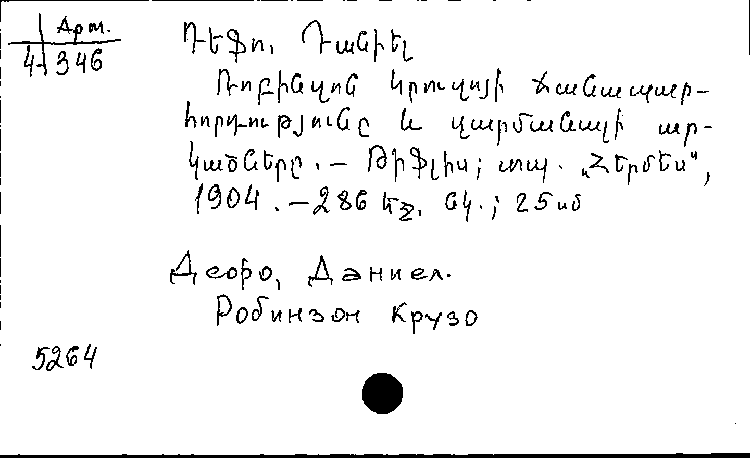 Арт.
4-346
Դեֆո, Դանիել
Ռոբինզոն Կրուզոյի ճանապար-
հորդությունը և զարմանալի ար-
կածները. – Թիֆլիս; տպ. „Հերմես",
1904. – 286 եջ. նկ.; 25սմ
Дефо, Даниел.
Робинзон Крузо
5264